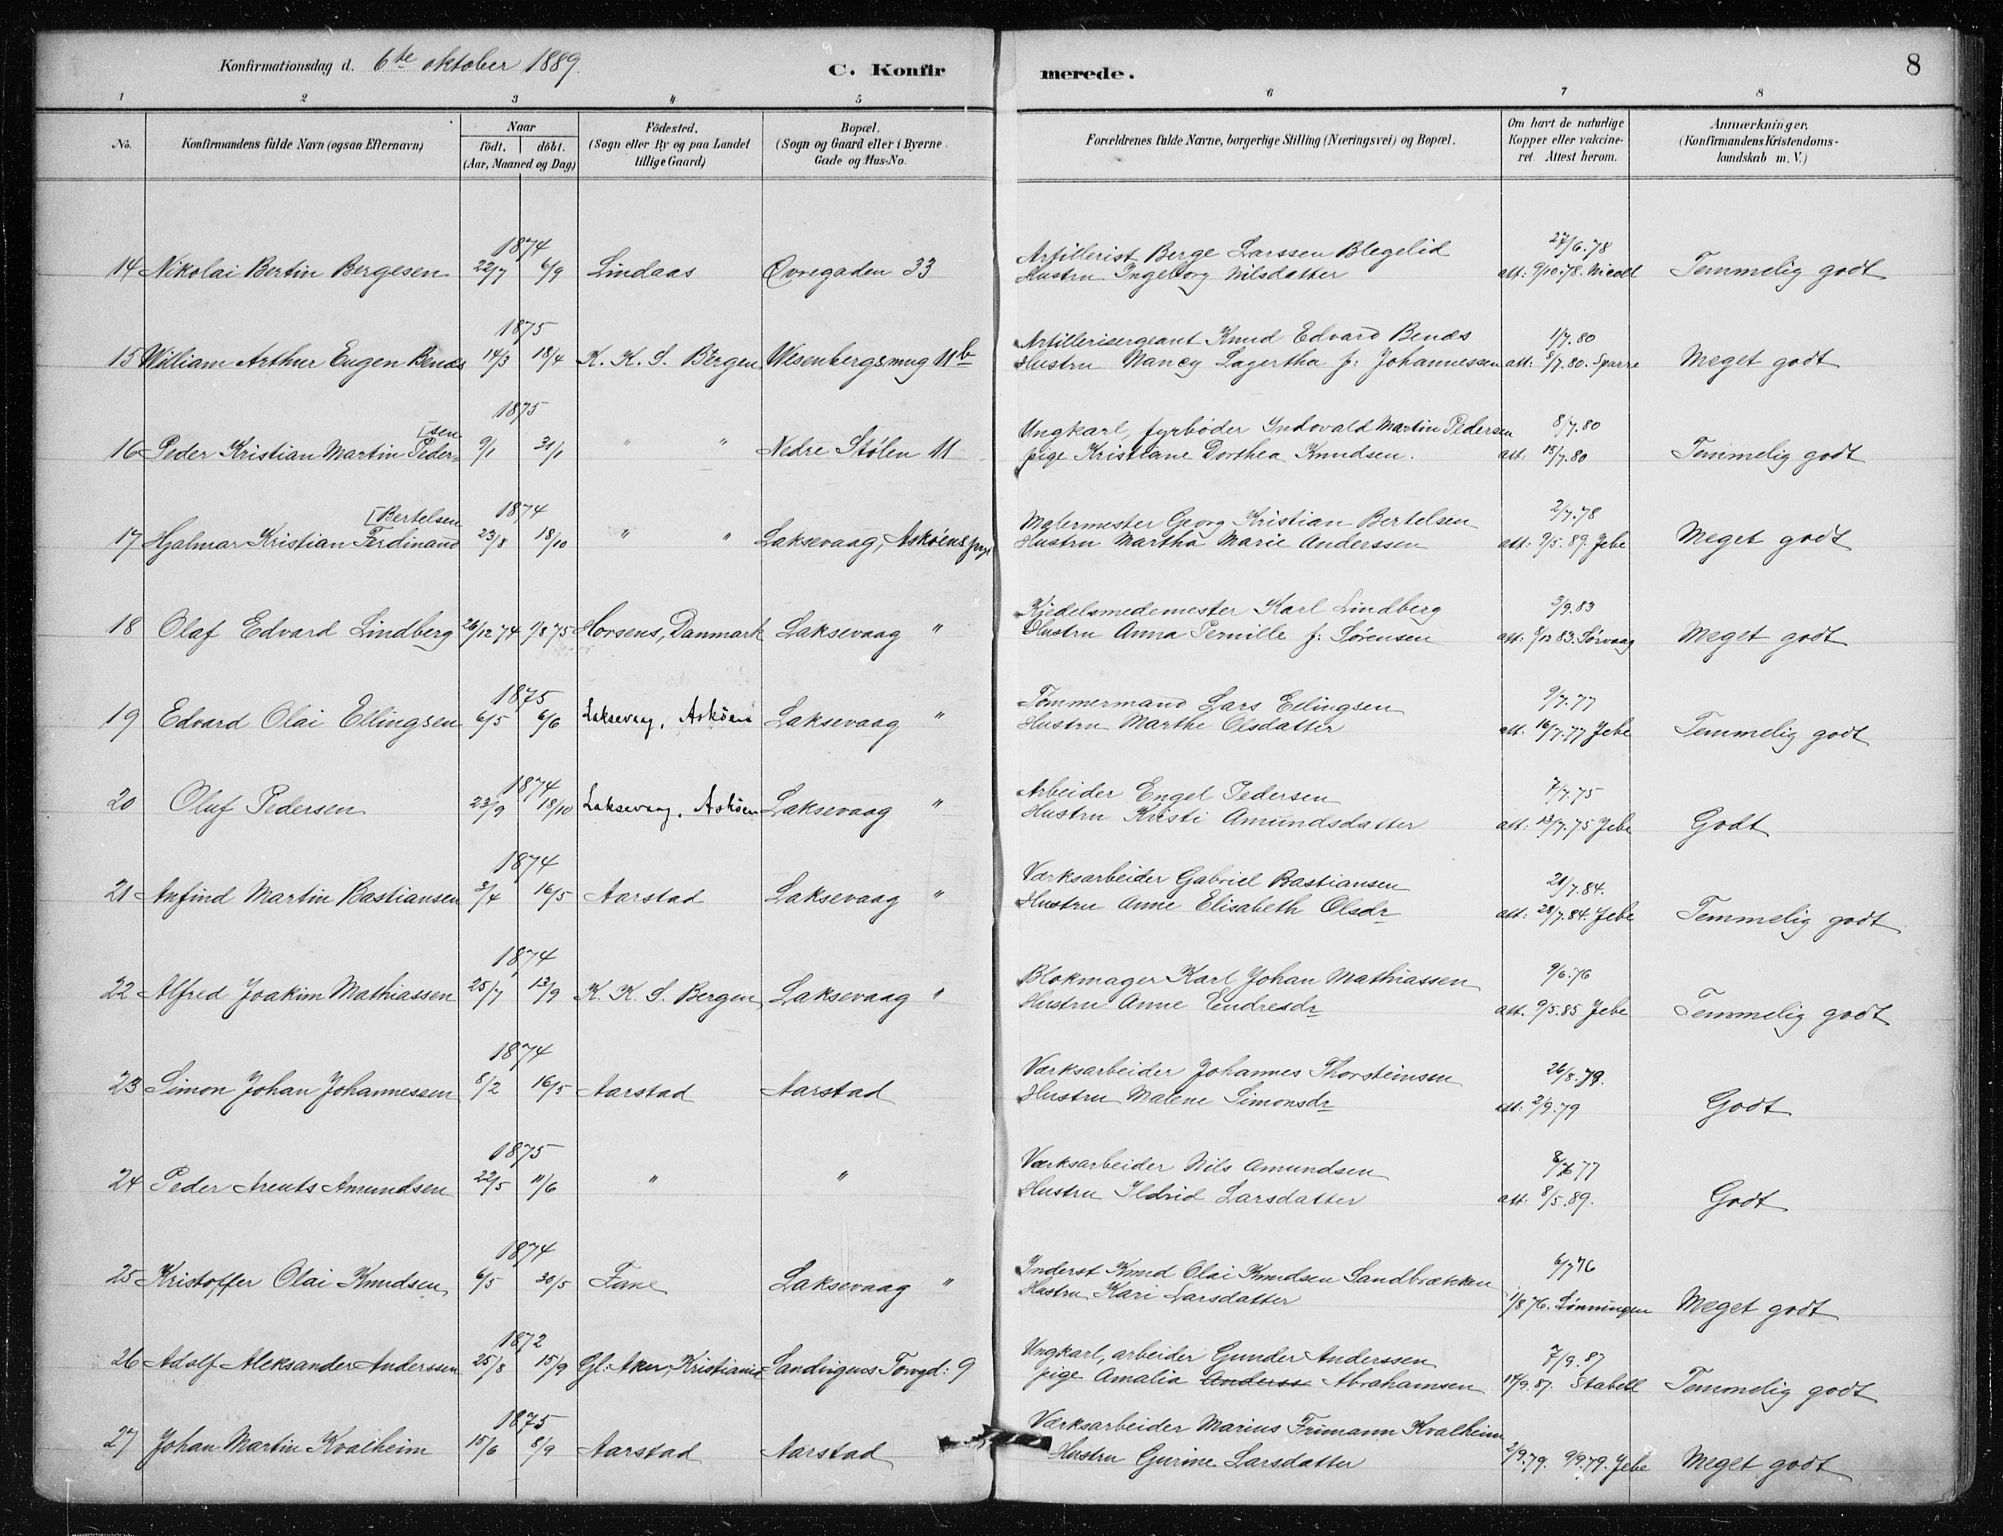 Konfirmationsdag d. 6te oktober 1889.
C. Konfirmerede.
8
1 2 3 4 5 6 7 8
No.
Konfirmandens fulde Navn (ogsaa Efternavn)
Naar
födt. döbt.
(Aar, Maaned og Dag)
Födested.
(Sogn eller By og paa Landet
tillige Gaard)
Bopæl.
(Sogn og Gaard eller i Byerne
Gade og Hus-No.
Forældrenes fulde Navne, borgerlige Stilling (Næringsvei) og Bopæl.
Om havt de naturlige
Kopper eller vakcine-
ret. Attest herom.
Anmærkninger.
(Konfirmandens Kristendoms-
kundskab m. V.)
1874 Artillerist Berge Larssen Blegelid 27/6.78
14 Nikolai Bertin Bergesen 22/7 6/9 Lindaas Øvregaden 33 Hustru Ingeborg Nilsdatter att: 9/10.78. Nicoll Temmelig godt
1875 Artillerisergeant Knud Edvard Benæs 1/7.80
15 William Arthur Eugen Benæs 14/3 18/4 K. K. S. Bergen Wesenbergsmug 11b Hustru Nancy Lagertha f: Johannessen att: 8/7.80. Sparre Meget godt
1875 Ungkarl, fyrbøder Indovald Martin Pedersen 8/7.80
[sen
16 Peder Kristian Martin Peder= 9/1 31/1 " " Nedre Stølen 11 pige Kristiane Dorthea Knudsen. att: 18/7.80 Temmelig godt
[Bertelsen 1874 Malermester Georg Kristian Bertelsen 2/7.78
17 Hjalmar Kristian Ferdinand 23/8 18/10 " " Laksevaag, Askøens prgj Hustru Martha Marie Anderssen att: 9/5.89. Jebe Meget godt
Kjedelsmedemester Karl Lindberg 3/9.83
18 Olaf Edvard Lindberg 26/12 74 1/8 75 Horsens, Danmark Laksevaag " Hustru Anna Pernille f: Sørensen att: 9/12 83. Sørvaag Meget godt
1875 Tømmermand Lars Ellingsen 9/7.77
19 Edvard Olai Ellingsen 6/5 6/6 Laksevaag, Askøen Laksevaag " Hustru Marthe Olsdatter att. 16/7.77 Jebe Temmelig godt
1874 Arbeider Engel Pedersen 7/7.75
20 Oluf Pedersen 23/9 18/10 Laksevaag, Askøen Laksevaag " Hustru Kristi Amundsdatter att: 13/7.75 Jebe Godt
1874 Værksarbeider Gabriel Bastiansen 21/7.84.
21 Anfind Martin Bastiansen 3/4 16/5 Aarstad Laksevaag " Hustru Anne Elisabeth Olsdr att: 28/7.84. Jebe Temmelig godt
1874 Blokmager Karl Johan Mathiassen 9/6.76
22 Alfred Joakim Mathiassen 25/7 13/9 K. K. S. Bergen Laksevaag " Hustru Anne Endresdr att. 9/5.85 Jebe Temmelig godt
1874 Værksarbeider Johannes Thorsteinsen 26/8.79.
23 Simon Johan Johannessen 8/2 16/5 Aarstad Aarstad Hustru Malene Simonsdr att: 2/9.79 Godt
1875 Værksarbeider Nils Amundsen 8/6 77
24 Peder Arents Amundsen 22/5 11/6 " " Hustru Ildrid Larsdatter att: 8/5.89. Godt
1874 Inderst Knud Olai Knudsen Sandbrækken 6/7 76
25 Kristoffer Olai Knudsen 6/5 30/5 Fane Laksevaag " Hustru Kari Larsdatter 1/8 76. Lønningen Meget godt
1872 Ungkarl, arbeider Gunder Anderssen 7/9.87
26 Adolf Aleksander Anderssen 25/8 15/9 Gl: Aker, Kristiania Sandvigens Torvgd: 9 pige Amalia Anderss Abrahamsen 14/9.87. Stabell Temmelig godt
1875 Værksarbeider Marius Frimann Kvalheim
27 Johan Martin Kvalheim 15/6 8/9 Aarstad Aarstad Hustru Gurine Larsdatter 2/9.79. 9/9.79. Jebe Meget godt